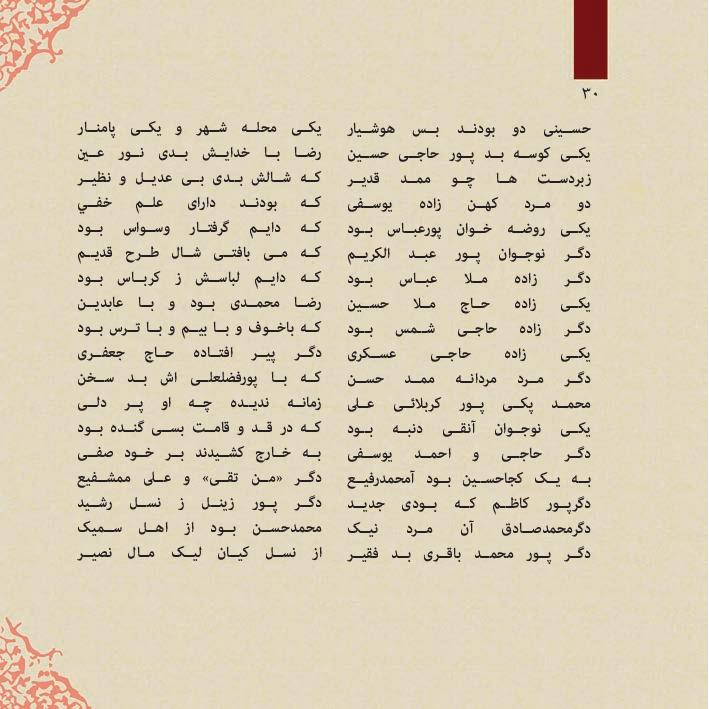 ۳۰
حسینی دو بودند بس هوشیار	یکی محله شهر و یکی پامنار
یکی کوسه بد پور حاجی حسین	رضا با خدایش بدی نور عین
زبردست ها چو ممد قدیر	که شالش بدی بی عدیل و نظیر
دو مرد کهن زاده یوسفی	که بودند دارای علم خفي
یکی روضه خوان پورعباس بود	که دایم گرفتار وسواس بود
دگر نوجوان پور عبد الکریم	که می بافتی شال طرح قدیم
دگر زاده ملا عباس بود	که دایم لباسش ز کرباس بود
یکی زاده حاج ملا حسین	رضا محمدی بود و با عابدین
دگر زاده حاجی شمس بود	که باخوف و با بیم و با ترس بود
یکی زاده حاجی عسکری	دگر پیر افتاده حاج جعفری
دگر مرد مردانه ممد حسن	که با پورفضلعلی اش بد سخن
محمد یکی پور کربلائی علی	زمانه ندیده چه او پر دلی
یکی نوجوان آنقی دنبه بود	که در قد و قامت بسی گنده بود
دگر حاجی و احمد یوسفی	به خارج کشیدند بر خود صفی
به یک کجاحسین بود آمحمدرفیع	دگر «من تقی» و علی ممشفیع
دگرپور کاظم که بودی جدید	دگر پور زینل ز نسل رشید
دگرمحمدصادق آن مرد نیک	محمدحسن بود از اهل سمیک
دگر پور محمد باقری بد فقیر	از نسل کیان لیک مال نصیر